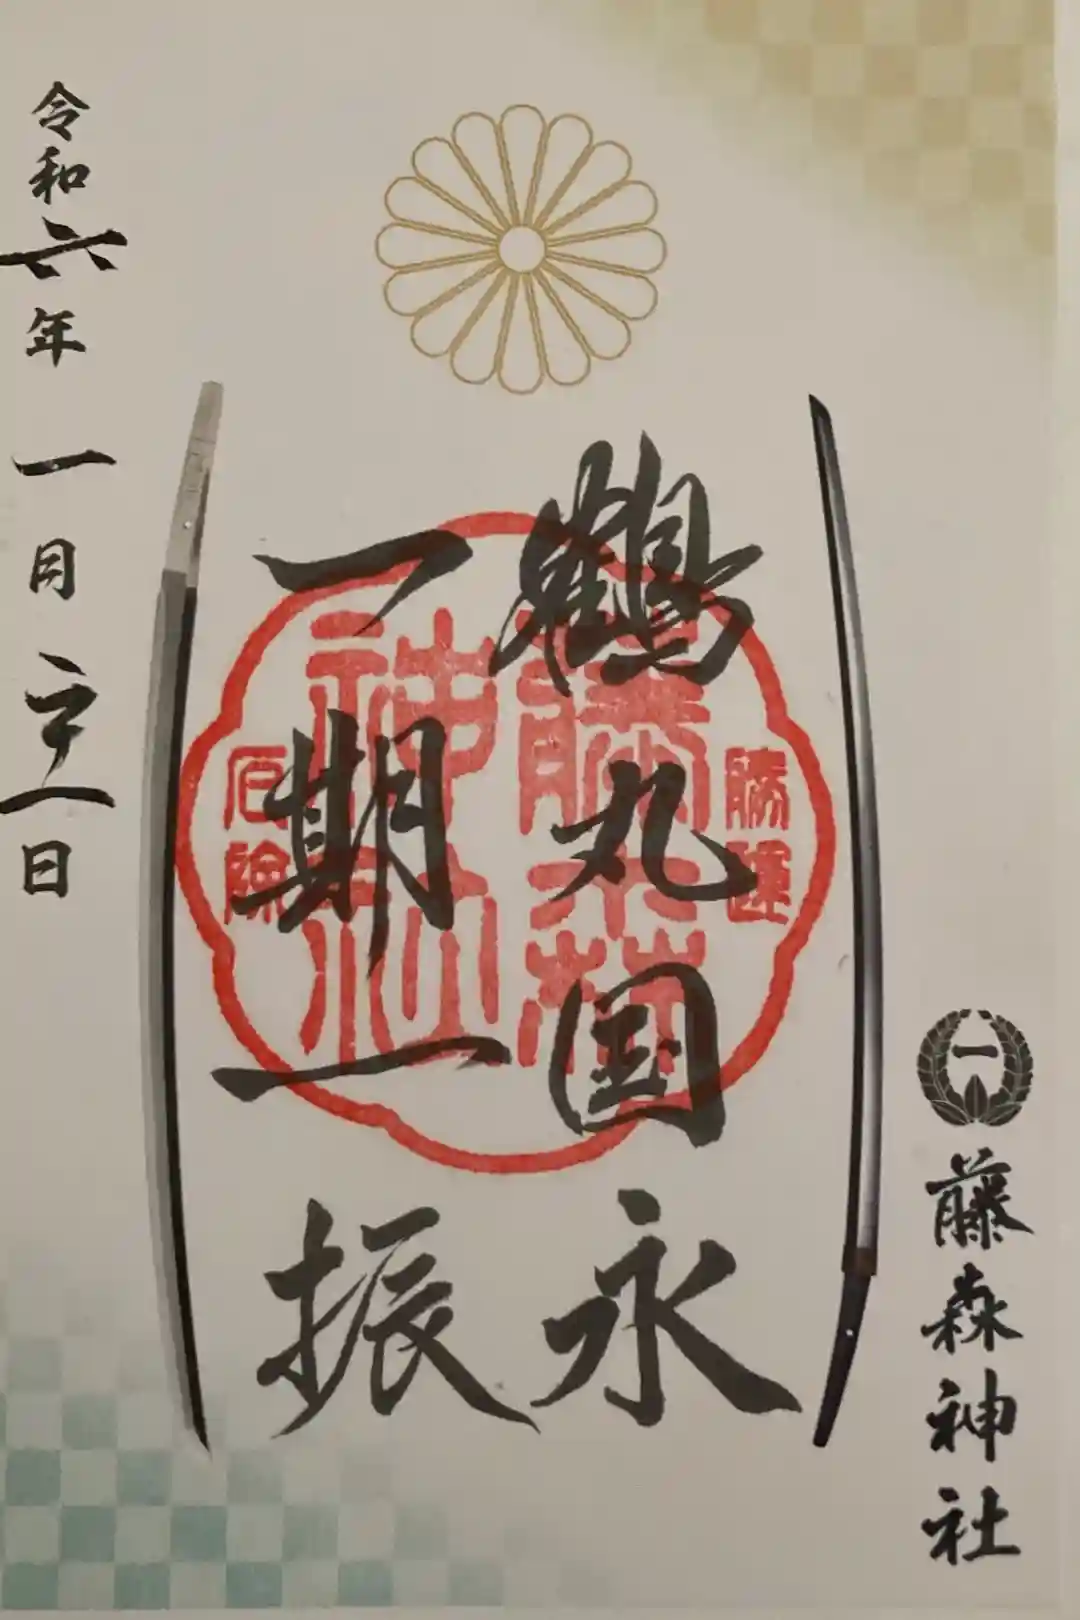 藤森神社
鶴丸国永
一期一振
令和六年一月二十一日
勝運
藤森
神社
厄除